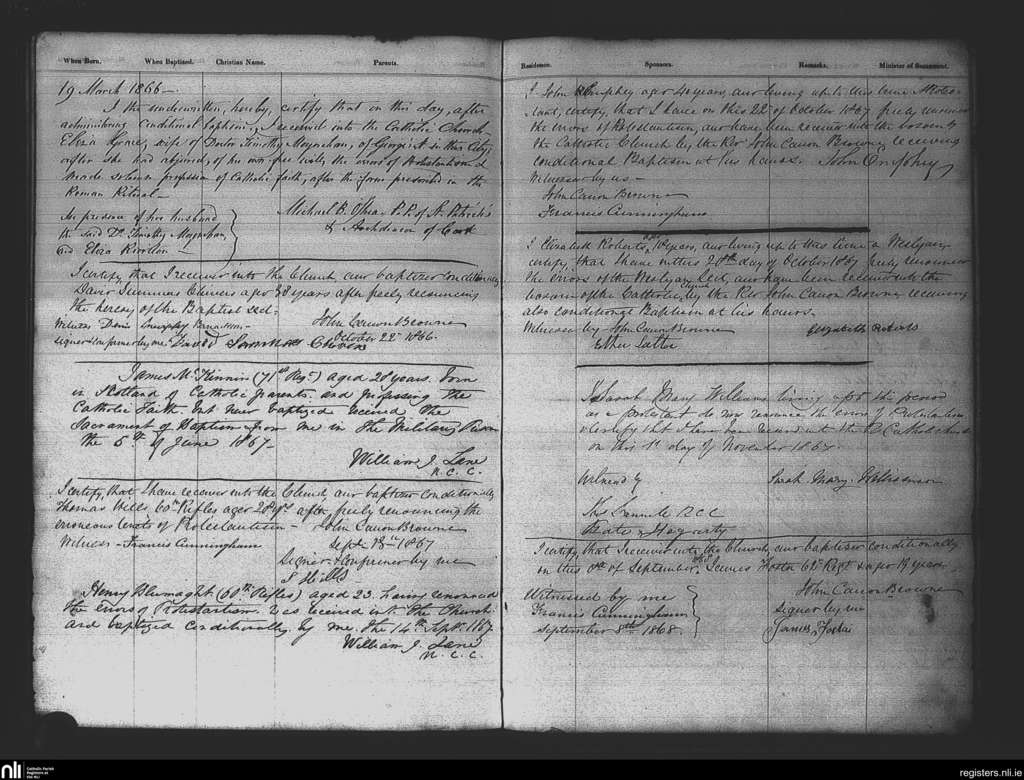 When Born. When Baptized. Christian Name. Parents.
19 March 1866 —
I the underwritten, hereby, certify that on this day, after
administering conditional baptism, I received into the Catholic Church
Eliza wife of Doctor Timothy Moynahan, of George's St in this City,
after she had abjured, of her own free will, the errors of Protestantism &
made solemn profession of Catholic faith, after the form prescribed in the
Roman Ritual —
In presence of her husband
the said Dr. Timothy Moynahan,
and Eliza
Michael B. O'Shea P.P. of St. Patrick's
& Archdeacon of Cork
I certify, that I received into the Church and baptized conditionally
David Summers Chivers aged 38 years after freely renouncing
the heresy of the Baptist sect.
Witness Denis Murphy
John Canon Browne
October 22nd 1866.
Signed & confirmed by me David Summers Chivers
James McKinnin (71st Reg.) aged 28 years. Born
in Scotland of Catholic parents. and professing the
Catholic Faith. but never baptized received the
Sacrament of Baptism from me in the Military Prison
the 5th of June 1867 —
William J. Lane
R. C. C.
I certify, that I have received into the Church, and baptized conditionally
Thomas Wills 60th Rifles aged 28 yrs after, freely renouncing the
erroneous tenets of Protestantism — John Canon Browne
Witness — Francis Cunningham Sept. 1867
Signed & confirmed by me
Henry (60th Rifles) aged 23. having renounced
the errors of Protestantism was received into the Church
and baptized conditionally by me the 14th Sept. 1867
William J. Lane
R. C. C.
Residence. Sponsors. Remarks. Minister of Sacrament.
I John aged years, and living up to this time a
certify, that I have on this 22nd of October 1867 freely renounced
the errors of Protestantism, and have been received into the bosom of
the Catholic Church by, the Revd John Canon Browne, receiving
conditional Baptism at his hands. John
Witnesses by us —
John Canon Browne
Francis Cunningham
I Elizabeth Roberts, years, and living up to this time a Wesleyan
certify, that I have on this 28th day of October 1867 freely renounced
the errors of the Wesleyan Sect, and have been received into the
bosom of the Catholic Church by the Rev John Canon Browne receiving
also conditional Baptism at his hands.
Witnesses by John Canon Browne Elizabeth Roberts
Esther
I Sarah Mary Williams living up to the period
as a protestant do now renounce the errors of Protestantism
& certify that I have been received into the R Catholic Church
on this 1st day of November 1867
Witnessed by Sarah Mary
R.C.C
Hagarty
I certify, that I received into the Church, and baptized conditionally
on this of September, James 62nd Regt aged 19 years.
Witnessed by me John Canon Browne
Francis Cunningham Signed by me
September 8th 1868 James
nli
Catholic Parish
Registers at
the NLI
registers.nli.ie